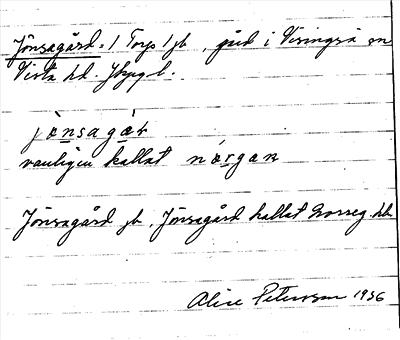 Jönsagård, 1 Torp 1 jb, jud i Visingsö sn
Vista hd. Jkpg l.
jönsagår
vanligen kallat norgan
Jönsagård jb, Jönsagård kallat Norreg. hb.
Alice Petersson 1936